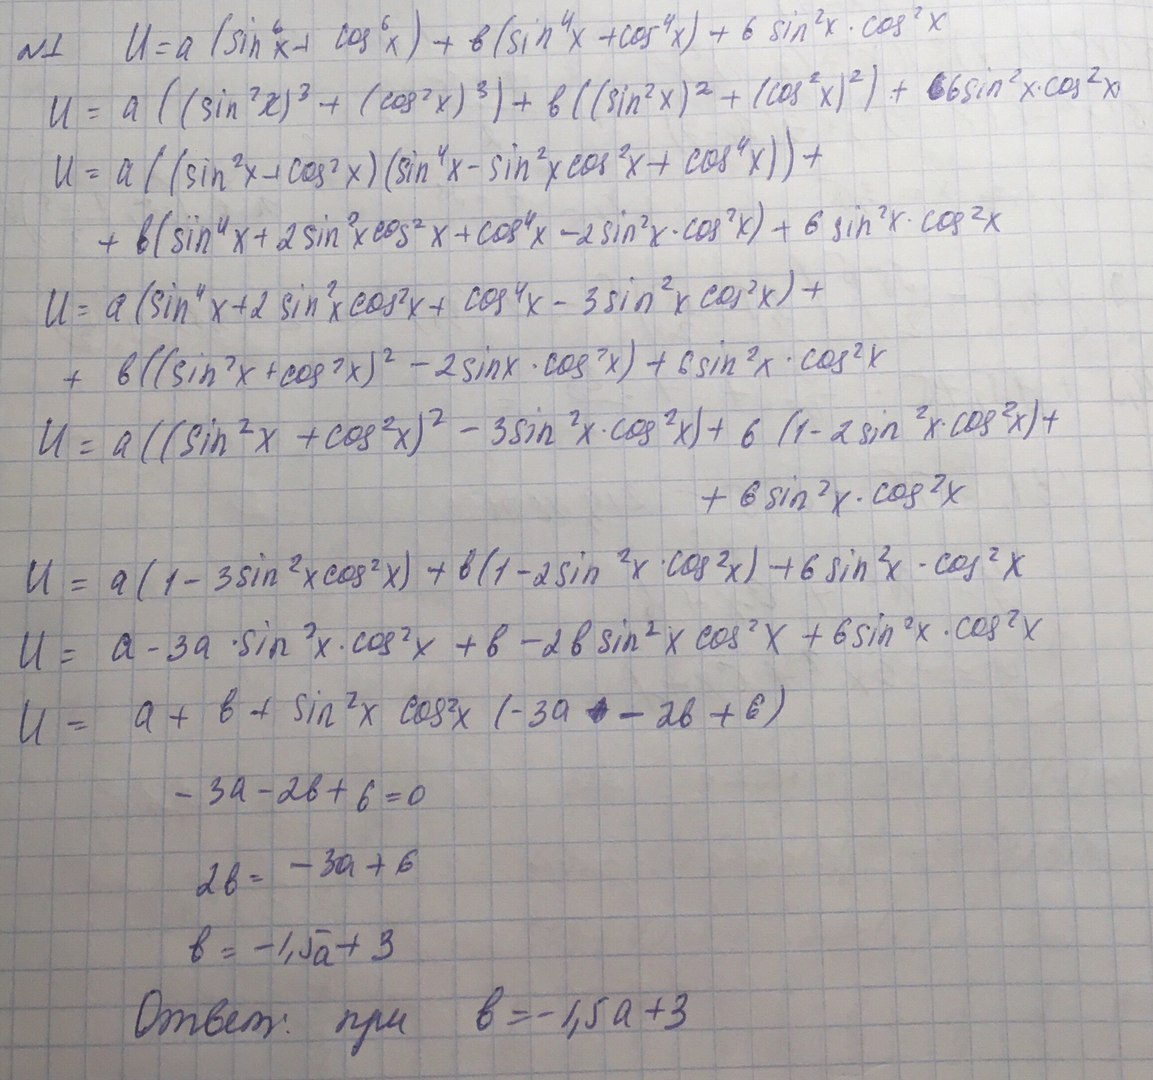 №1 U = a (sin⁶x + cos⁶x) + b (sin⁴x + cos⁴x) + 6 sin²x · cos²x
U = a ((sin²x)³ + (cos²x)³) + b ((sin²x)² + (cos²x)²) + 6sin²x·cos²x
U = a ((sin²x + cos²x)(sin⁴x - sin²x cos²x + cos⁴x)) +
+ b(sin⁴x + 2sin²x cos²x + cos⁴x - 2sin²x·cos²x) + 6 sin²x · cos²x
U = a (sin⁴x + 2 sin²x cos²x + cos⁴x - 3sin²x cos²x) +
+ b((sin²x + cos²x)² - 2sinx · cos²x) + 6sin²x · cos²x
U = a ((sin²x + cos²x)² - 3sin²x·cos²x) + b (1 - 2sin²x·cos²x) +
+ 6sin²x · cos²x
U = a (1 - 3sin²x cos²x) + b (1 - 2sin²x·cos²x) + 6sin²x · cos²x
U = a - 3a · sin²x · cos²x + b - 2b sin²x cos²x + 6sin²x · cos²x
U = a + b + sin²x cos²x (-3a - 2b + 6)
-3a - 2b + 6 = 0
2b = -3a + 6
b = -1,5a + 3
Ответ: при b = -1,5a + 3